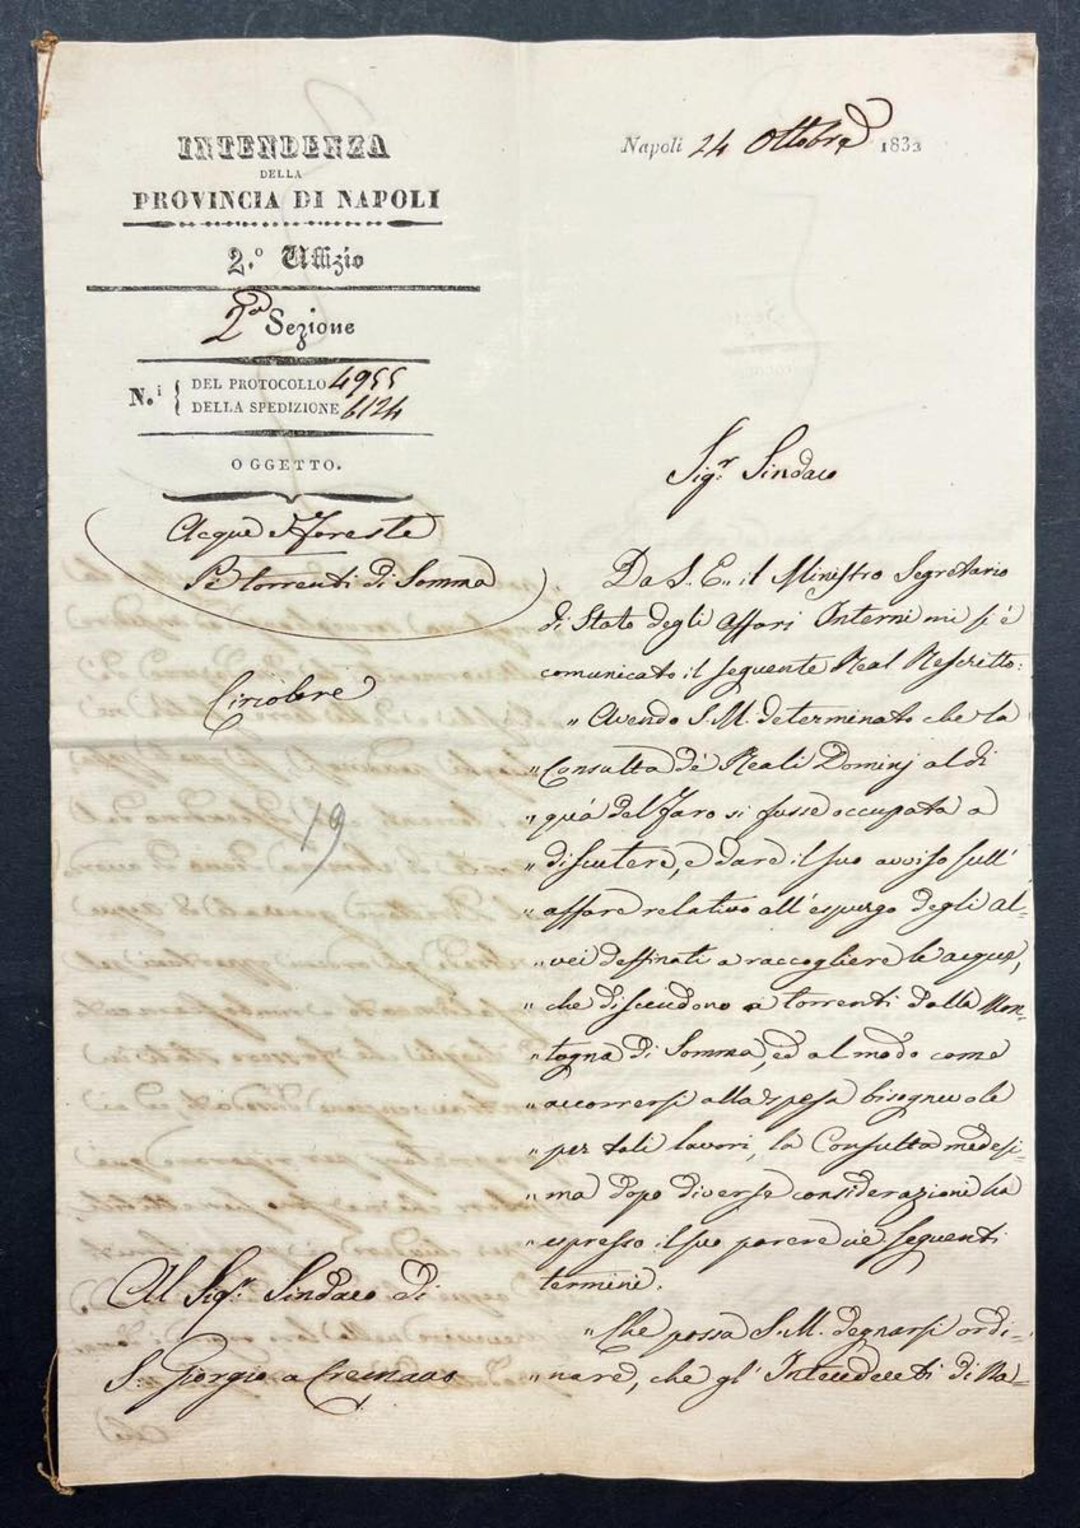 INTENDENZA
DELLA
PROVINCIA DI NAPOLI
2.º Uffizio
2ª Sezione
N.i { DEL PROTOCOLLO 4955
DELLA SPEDIZIONE 6124
OGGETTO.
Acque e Foreste
Pe' torrenti di Somma
Circolare
19
Al Sig.r Sindaco di
S. Giorgio a Cremano
Napoli 24 Ottobre 1832
Sig.r Sindaco
Da S. E. il Ministro Segretario
di Stato degli affari Interni mi si è
comunicato il seguente Real Rescritto:
„ Avendo S. M. determinato che la
„ Consulta de' Reali Dominj al di
„ quà del Faro si fusse occupata a
„ discutere, e dare il suo avviso sull'
„ affare relativo all'espurgo degli al-
„ vei destinati a raccogliere le acque,
„ che discendono a torrenti dalla Mon-
„ tagna di Somma, ed al modo come
„ accorrersi alla spesa bisognevole
„ per tali lavori, la Consulta medesi-
„ ma dopo diverse considerazioni ha
„ espresso il suo parere ne' seguenti
termini.
„ Che possa S. M. degnarsi ordi-
„ nare, che gl'Intendenti di Na-